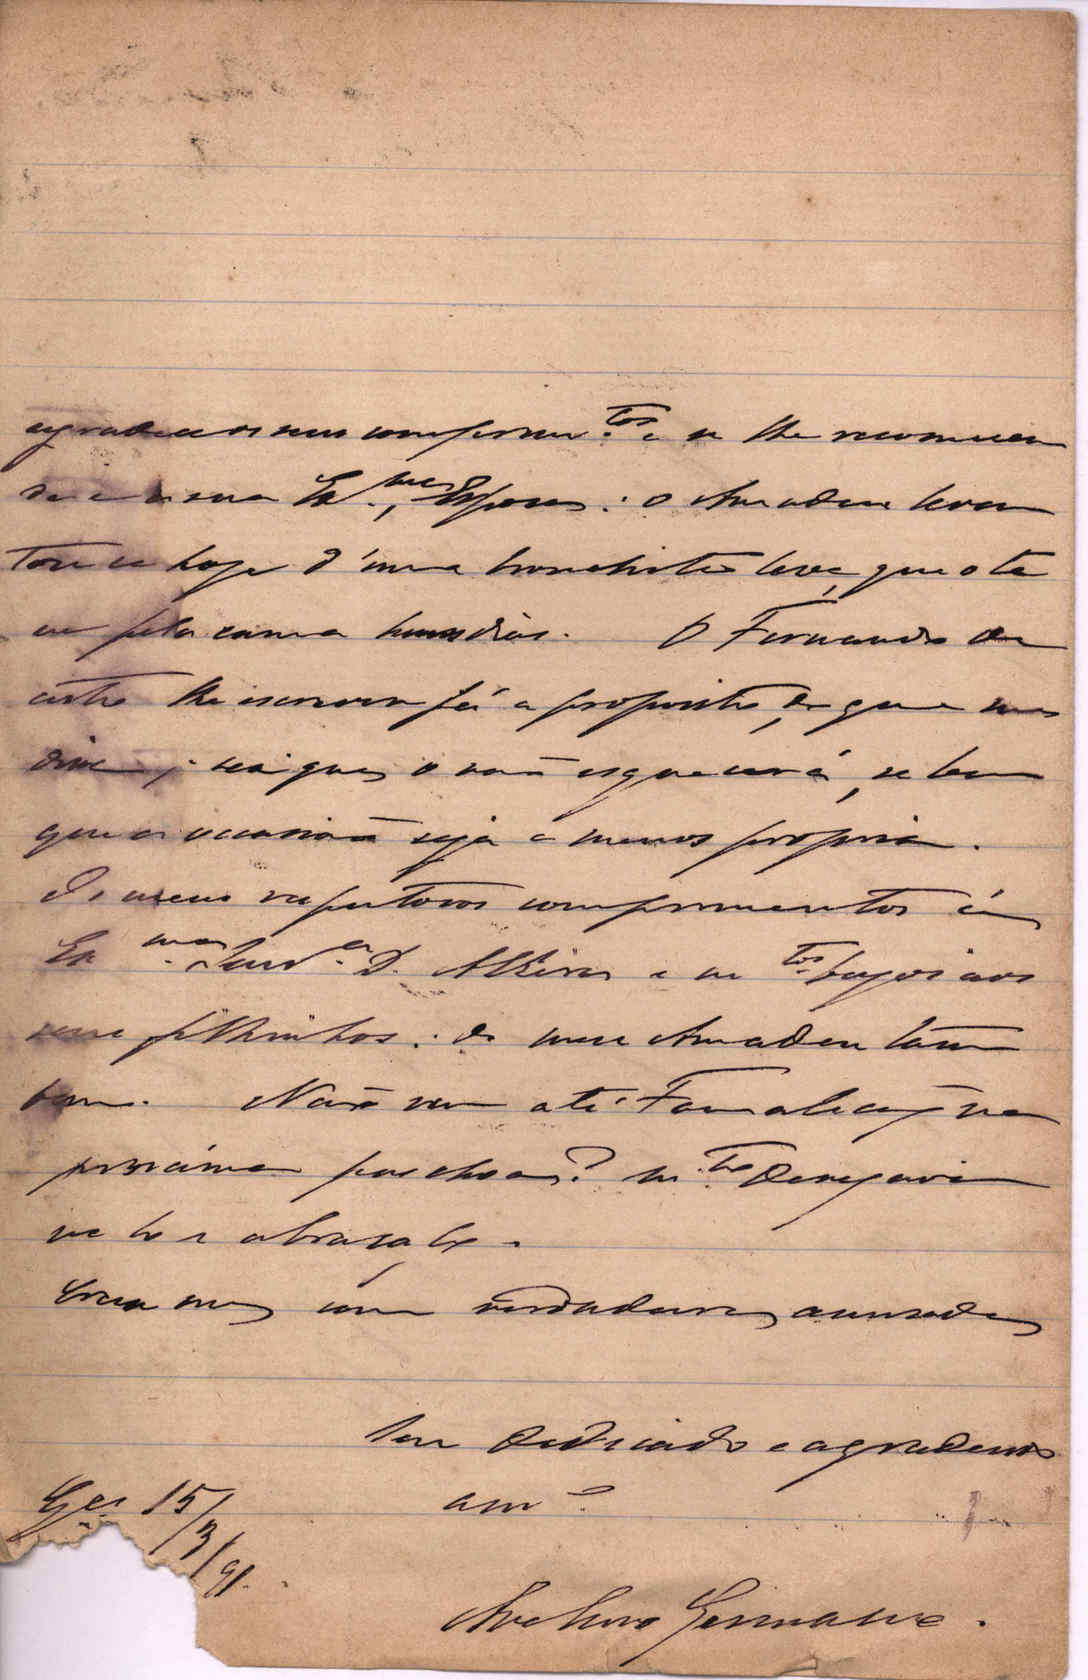 agradece os seus comprim.tos e se lhe recommen
da e a sua Ex.ma Esposa: o Amadeu levan
tou se hoje d'uma bronchite leve, que o te
ve pela cama huns dias. O Fernando de
certo lhe escreveu já a proposito, do que me
disse; sei que o não esquecerá, se bem
que a occasião seja a menos propria.
Os meus respeitosos comprimentos á
Ex.ma Snr.a D. Albina e m.tos beijos aos
seus filhinhos: do meu Amadeu tam
bem. Não vem até Famalicão na
proxima paschoa? M.to desejaria
vel-o e abraçal-o.
Creia me com verdadeira amizade
Seu dedicado e agradecido
am.o
Ges 15/3/91.
Avelino Germano.